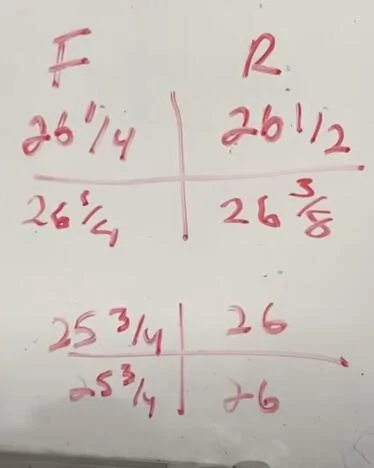 F R
26 1/4 26 1/2
26 1/4 26 3/8
25 3/4 26
25 3/4 26